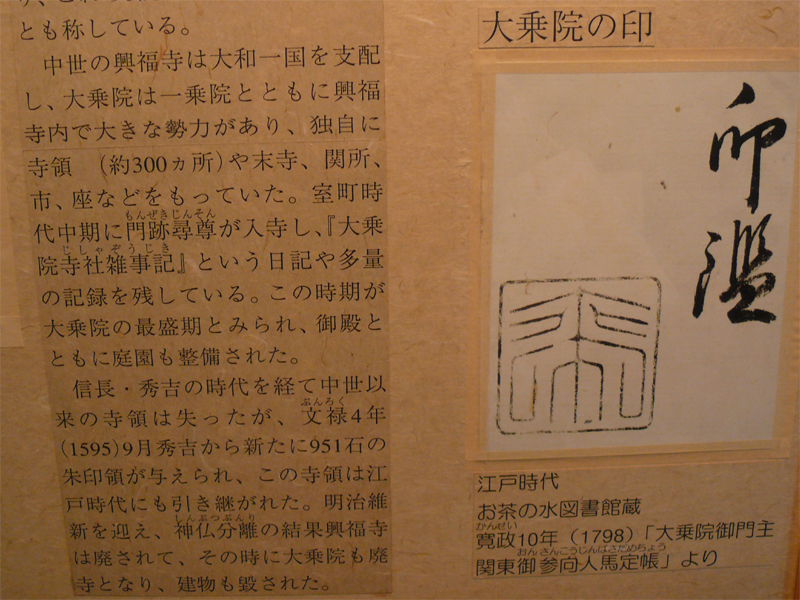 とも称している。
中世の興福寺は大和一国を支配
し、大乗院は一乗院とともに興福
寺内で大きな勢力があり、独自に
寺領 （約300ヵ所）や末寺、関所、
市、座などをもっていた。室町時
もんぜきじんそん
代中期に門跡尋尊が入寺し、『大乗
じしゃぞうじき
院寺社雑事記』という日記や多量
の記録を残している。この時期が
大乗院の最盛期とみられ、御殿と
ともに庭園も整備された。
信長・秀吉の時代を経て中世以
ぶんろく
来の寺領は失ったが、文禄4年
(1595)9月秀吉から新たに951石の
朱印領が与えられ、この寺領は江
戸時代にも引き継がれた。明治維
しんぶつぶんり
新を迎え、神仏分離の結果興福寺
は廃されて、その時に大乗院も廃
寺となり、建物も毀された。
大乗院の印
印鑑
江戸時代
お茶の水図書館蔵
かんせい
寛政10年（1798）「大乗院御門主
おんさんこうじんばさだめちょう
関東御参向人馬定帳」より